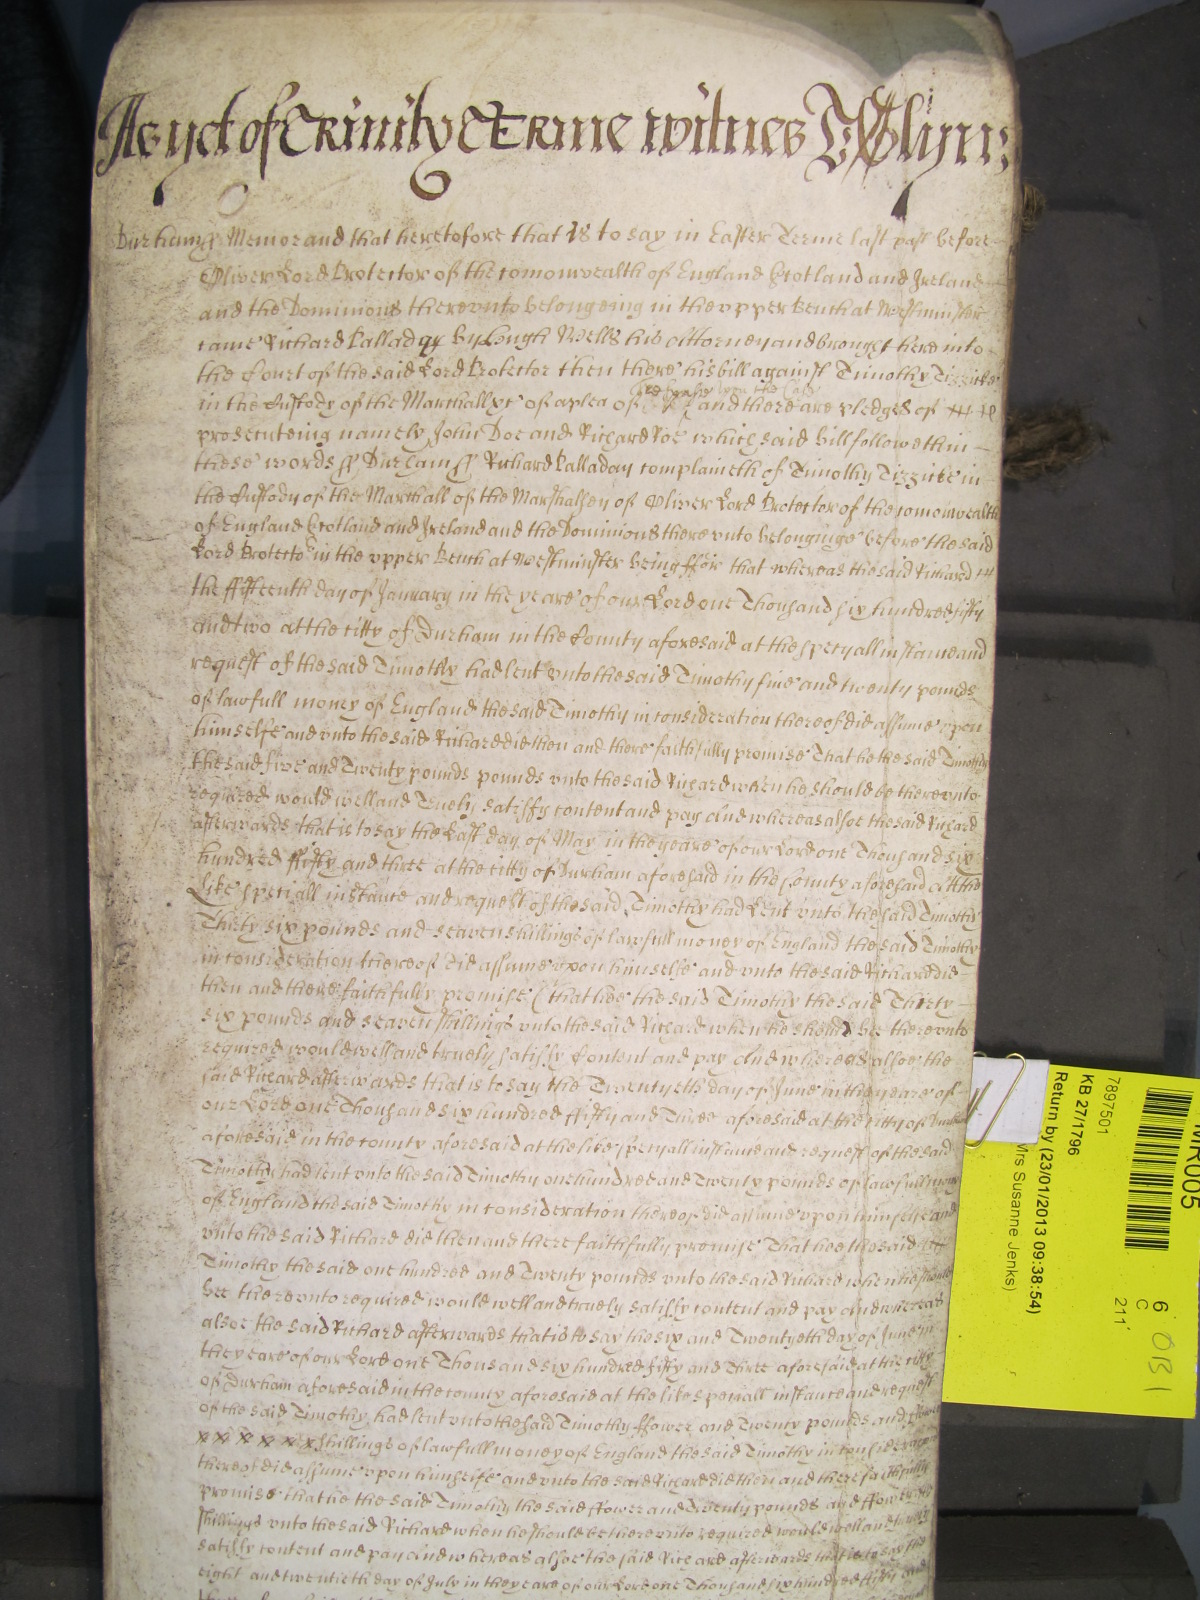 As yet of Trinity Terme witnes Glynn
Durham ss Memorand that heretofore that is to say in Easter Terme last past before
Oliver Lord Protector of the comonwealth of England Scotland and Ireland
and the Dominions therevnto belongeing in the vpper Bench at Westminster
came Richard Palladay by Hugh Wells his Attorney and brought here into
the Court of the said Lord Protector then there his bill against Timothy Tizzicke
in the Custody of the Marshall &c of a plea of trespasse vpon the Case and there are pledges of
prosecuteing namely John Doe and Richard Roe which said bill followeth in
these words ss Durham ss Richard Palladay complaineth of Timothy Tizzicke in
the Custody of the Marshall of the Marshalsey of Oliver Lord Protector of the comonwealth
of England Scotland and Ireland and the Dominions there vnto belonginge before the said
Lord Protector in the vpper Bench at Westminster being ffor that whereas the said Richard
the ffifteenth day of January in the yeare of our Lord one Thousand six hundred fifty
and two at the citty of Durham in the County aforesaid at the specyall instance and
request of the said Timothy had lent vnto the said Timothy five and twenty pounds
of lawfull money of England the said Timothy in consideration thereof did assume vpon
himselfe and vnto the said Richard did then and there faithfully promise That he the said Timothy
the said five and Twenty pounds pounds vnto the said Richard when he should be therevnto
required would well and Truely satisfy content and pay And whereas alsoe the said Richard
afterwards that is to say the Last day of May in the yeare of our Lord one Thousand six
hundred ffifty and three at the citty of Durham aforesaid in the County aforesaid att the
Like speciall instance and request of the said Timothy had Lent vnto the said Timothy
Thirty six pounds and seaven shillings of lawfull money of England the said Timothy
in consideration thereof did assume vpon himselfe and vnto the said Richard did
then and there faithfully promise that hee the said Timothy the said Thirty
six pounds and seaven shillings vnto the said Richard when he should bee therevnto
required would well and truely satisfy Content and pay And whereas alsoe the
said Richard afterwards that is to say the Twentyeth day of June in the yeare of
our Lord one Thousand six hundred ffifty and Three aforesaid at the citty of Durham
aforesaid in the county aforesaid at the like specyall instance and request of the said
Timothy had lent vnto the said Timothy one hundred and Twenty pounds of lawfull money
of England the said Timothy in consideration thereof did assume vpon himselfe and
vnto the said Richard did then and there faithfully promise That hee the said
Timothy the said one hundred and Twenty pounds vnto the said Richard when he should
bee therevnto required would well and truely satisfy content and pay And whereas
alsoe the said Richard afterwards that is to say the six and Twentyeth day of June in
the yeare of our Lord one Thousand six hundred fifty and Three aforesaid at the citty
of Durham aforesaid in the county aforesaid at the like speciall instance and request
of the said Timothy had lent vnto the said Timothy ffower and Twenty pounds and ffower
shillings of lawfull money of England the said Timothy in consideracon
thereof did assume vpon himselfe and vnto the said Richard did then and there faithfully
promise that he the said Timothy the said ffower and Twenty pounds and ffower
shillings vnto the said Richard when he should be therevnto required would well and truely
satisfy content and pay And whereas alsoe the said Richard afterwards that is to say the
eight and twentieth day of July in the yeare of our Lord one Thousand six hundred ffifty and
MR005
7897501
KB 27/1796
Return by (23/01/2013 09:38:54)
Mrs Susanne Jenks)
6
C
211